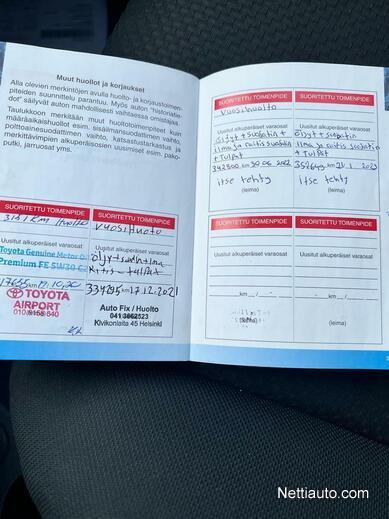 Muut huollot ja korjaukset
Alla olevien merkintöjen avulla huolto- ja korjaustoimen-
piteiden suunnittelu parantuu. Myös auton "historiatie-
dot" säilyvät auton mahdollisesti vaihtaessa omistajaa.
Taulukkoon merkitään muut huoltotoimenpiteet kuin
määräaikaishuollot esim. sisäilmansuodattimen vaihto,
polttoainesuodattimen vaihto, katsastustarkastus ja
merkittävimpien alkuperäisosien uusimiset esim. pako-
putki, jarruosat yms.
SUORITETTU TOIMENPIDE
huolto
Uusitut alkuperäiset varaosat
Toyota Genuine Motor Oil
Premium FE 5W30
km 19.10.20
TOYOTA
AIRPORT
SUORITETTU TOIMENPIDE
Vuosihuolto
Uusitut alkuperäiset varaosat
öljyt+suodin+ilma
Raitis-tulpat
334295 km 17.12.2021
Auto Fix / Huolto
041 3662523
Kivikonlaita 45 Helsinki
SUORITETTU TOIMENPIDE
Vuosihuolto
Uusitut alkuperäiset varaosat
öljyt+suodatin+
ilma ja raitis suodatin
+Tulpat
342800 km 30.06.2022
itse tehty
(leima)
SUORITETTU TOIMENPIDE
Uusitut alkuperäiset varaosat
öljyt+suodatin
ilma ja raitis suodatin
+Tulpat
km 21.1.2023
itse tehty
(leima)
SUORITETTU TOIMENPIDE
Uusitut alkuperäiset varaosat
km
SUORITETTU TOIMENPIDE
Uusitut alkuperäiset varaosat
km
(leima)
Nettiauto.com